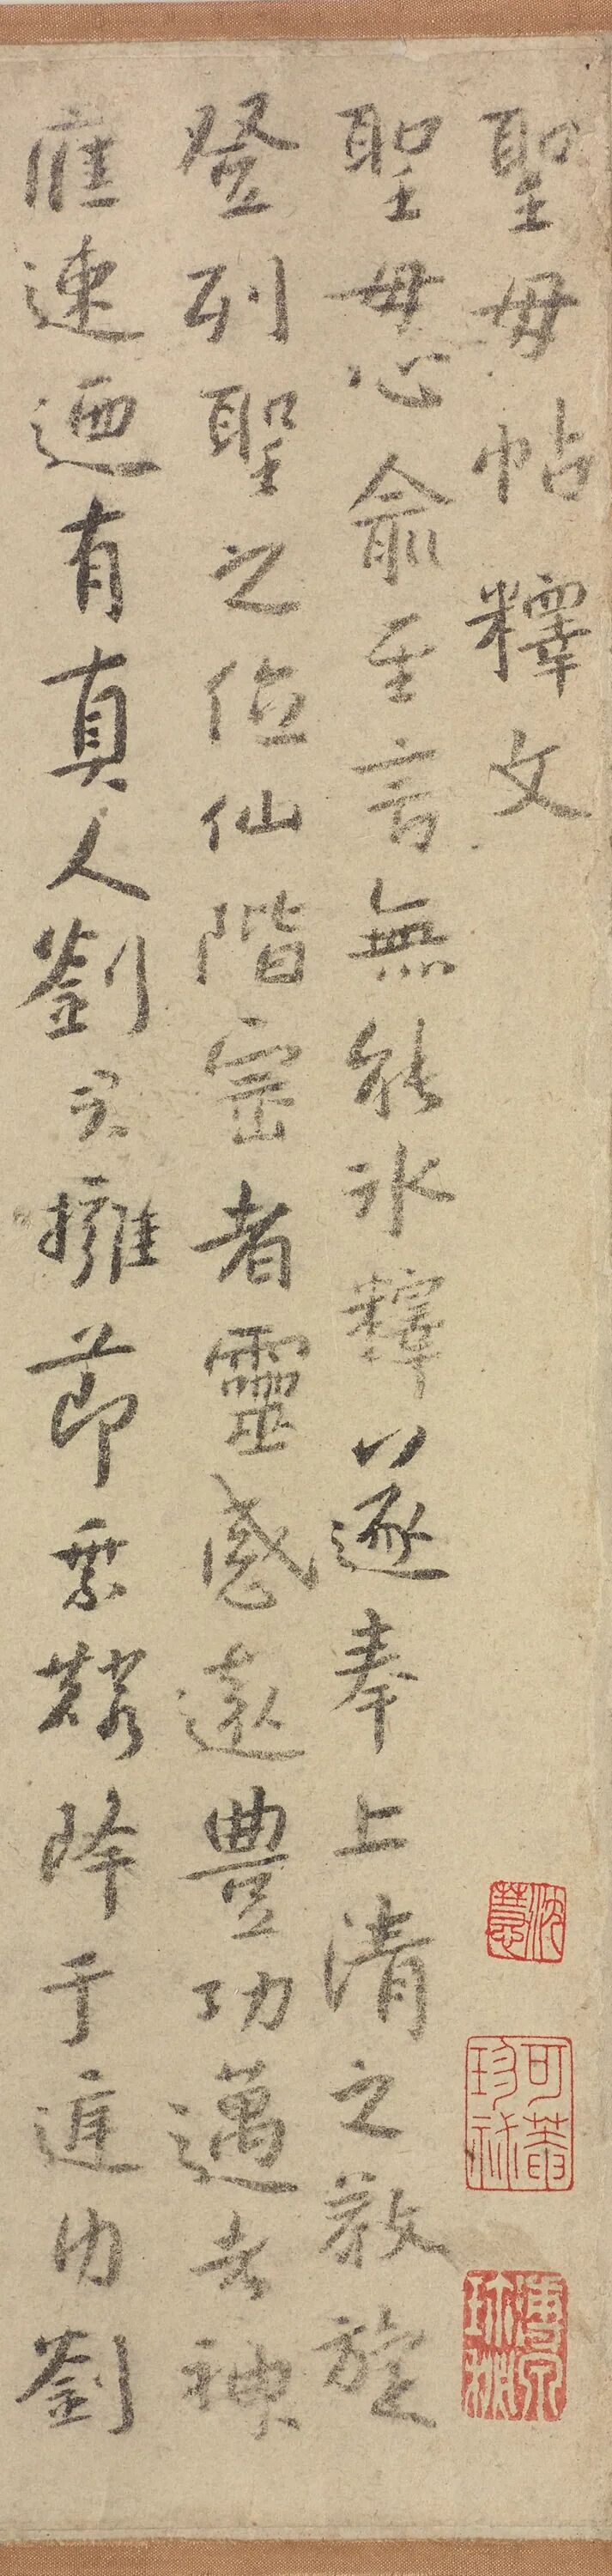 聖母帖釋文
聖母心俞至言無能氷釋遂奉上清之教旋
登列聖之位仙階崇者靈感遠豐功邁者神
應速迺有真人劉君擁節乗麟降于庭内劉